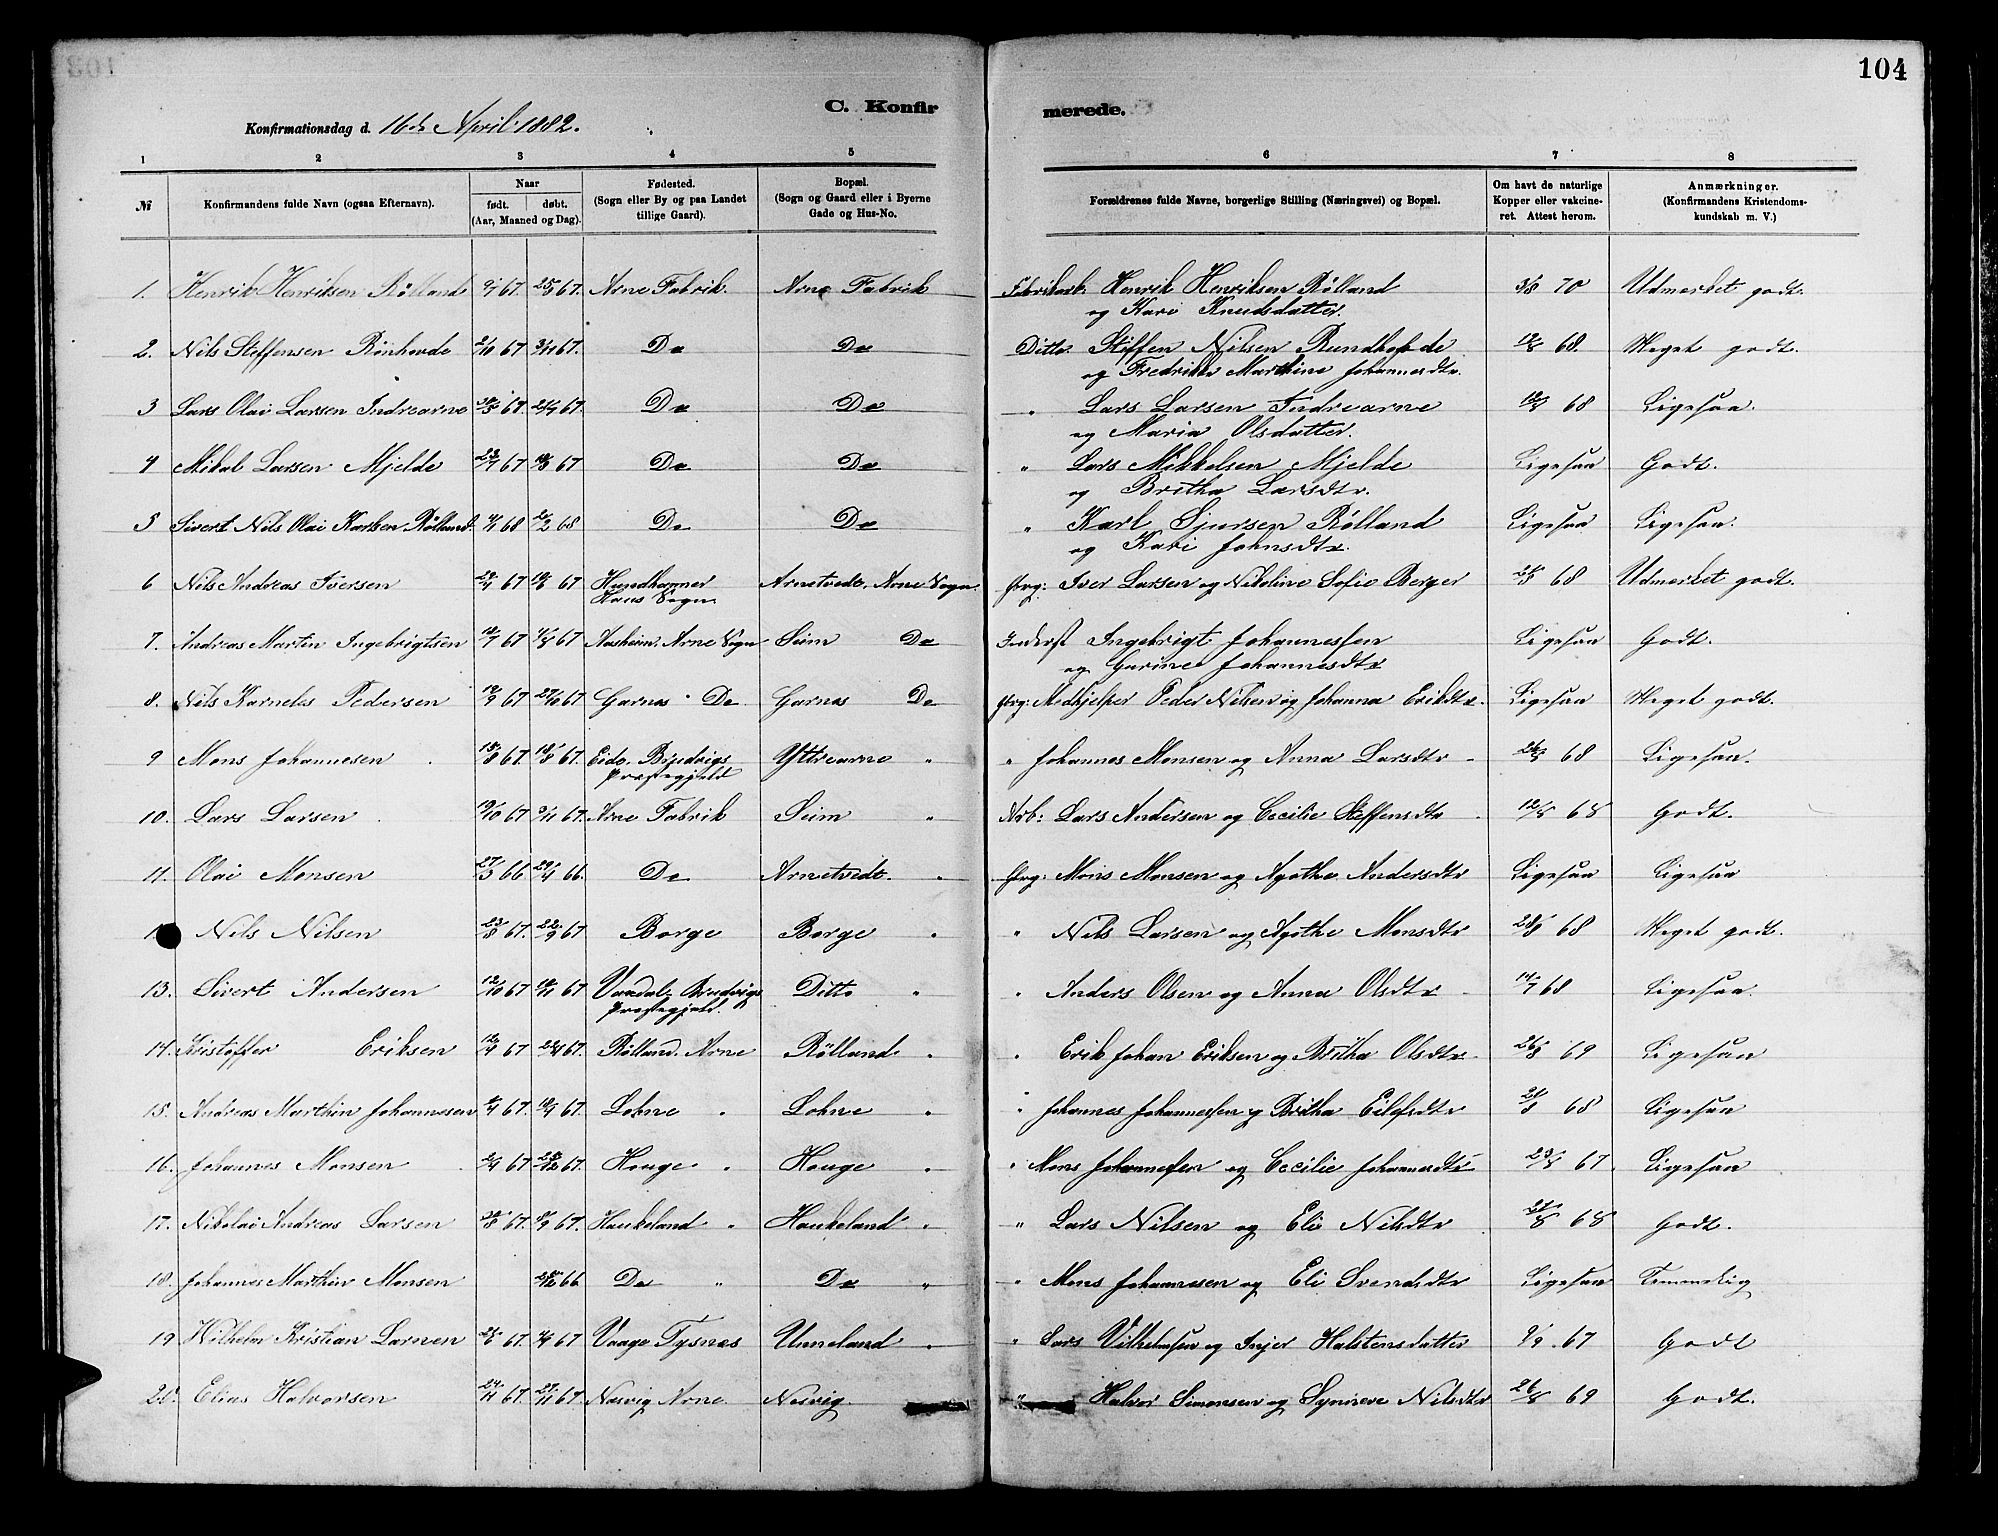 104
C. Konfir
merede.
Konfirmationsdag d. 16de April 1882.
1 2 3 4 5 6 7 8
№ Konfirmandens fulde Navn (ogsaa Efternavn). Naar født. døbt. (Aar, Maaned og Dag). Fødested. (Sogn eller By og paa Landet tillige Gaard). Bopæl. (Sogn og Gaard eller i Byerne Gade og Hus-No. Forældrenes fulde Navne, borgerlige Stilling (Næringsvei) og Bopæl. Om havt de naturlige Kopper eller vakcineret. Attest herom. Anmærkninger. (Konfirmandens Kristendomskundskab m. V.)
1. Henrik Henriksen Rølland 67. 67. Arne Fabrik. Arne Fabrik Fabrikarb. Henrik Henriksen Rølland 70 Udmerket godt.
og Kari Knudsdatter.
2. Nils Steffensen Rønhovde 67 67. Do Do Ditto. Steffen Nilsen 68. Meget godt.
og Marthine Johannesdtr.
3 Lars Olai Larsen Indrearne 67. 67. Do Do " Lars Larsen Indrearne 68 Ligesaa.
og Maria Olsdatter.
4 Mikal Larsen Mjelde 67 67 Do Do " Lars Mikkelsen Mjelde Ligesaa Godt.
og Britha Larsdtr.
5 Sivert Nils Olai Karlsen Rølland. 68 68 Do Do " Karl Sjursen Rølland Ligesaa Ligesaa.
og Kari Johnsdtr.
6 Nils Andreas Iversen 67 67 Hundhammer Arnetvedt. Arne Sogn. Iver Larsen og Nikoline Sofie Berger 68 Udmerket godt.
Haus Sogn.
7. Andreas Martin Ingebrigtsen 67 67 Aasheim. Arne Sogn Seim Do Inderst Ingebrigt Johannessen Ligesaa Godt.
og Gurine Johannesdtr
8. Nils Kornelis Pedersen 67 67 Garnæs Do Garnæs Do Medhjelper Peder Nilsen og Johanna Eriksdtr. Ligesaa Meget godt.
9 Mons Johannesen 67. 67. Eide, Bruvigs Yttrearne " " Johannes Monsen og Anna Larsdtr 68 Ligesaa.
Præstegjeld
10. Lars Larsen 19/10 67 67. Arne Fabrik Seim " Arb: Lars Andersen og Cecilie Steffensdtr 12/8 68 Godt.
11. Olai Monsen 27/3 66 29/4 66. Do Arnetvedt. " Mons Monsen og Agothe Andersdtr Ligesaa Ligesaa
Nils Nilsen 23/8 67. 22/9 67 Borge Borge " " Nils Larsen og Agothe Monsdtr 68 Meget godt.
13. Sivert Andersen 12/10 67 67 Vaxdal, Bruvigs Ditto " " Anders Olsen og Anna Olsdtr 14/7 68 Ligesaa.
Præstegjeld.
14. Kristoffer Eriksen 67 67. Rølland. Arne Rølland " " Erik Johan Eriksen og Britha Olsdtr 26/8 69 Ligesaa
15. Andreas Marthin Johannesen 67. 67. Lohne " Lohne " " Johannes Johannessen og Britha Eilefsdtr 68 Ligesaa
16. Johannes Monsen 67 67. Houge " Houge " " Mons Johannessen og Cecilie Johannesdtr 67. Ligesaa
17. Nikolai Andreas Larsen 67. 67. Haukeland " Haukeland " " Lars Nilsen og Eli Nilsdtr 68 Godt.
18. Johannes Marthin Monsen 66 Do " Do " " Mons Johannesen og Eli Svendsdtr Ligesaa Temmelig
19 Wilhelm Kristian Larsen 67. 67 Vaage Tysnæs Unneland " " Lars Vilhelmsen og Inger Halstensdatter 67 Godt
20. Elias Halvorsen 24/11 67 67 Næsvig Arne. Næsvig. " Halvor Simonsen og Synneve Nilsdtr 26/8 69 Godt.